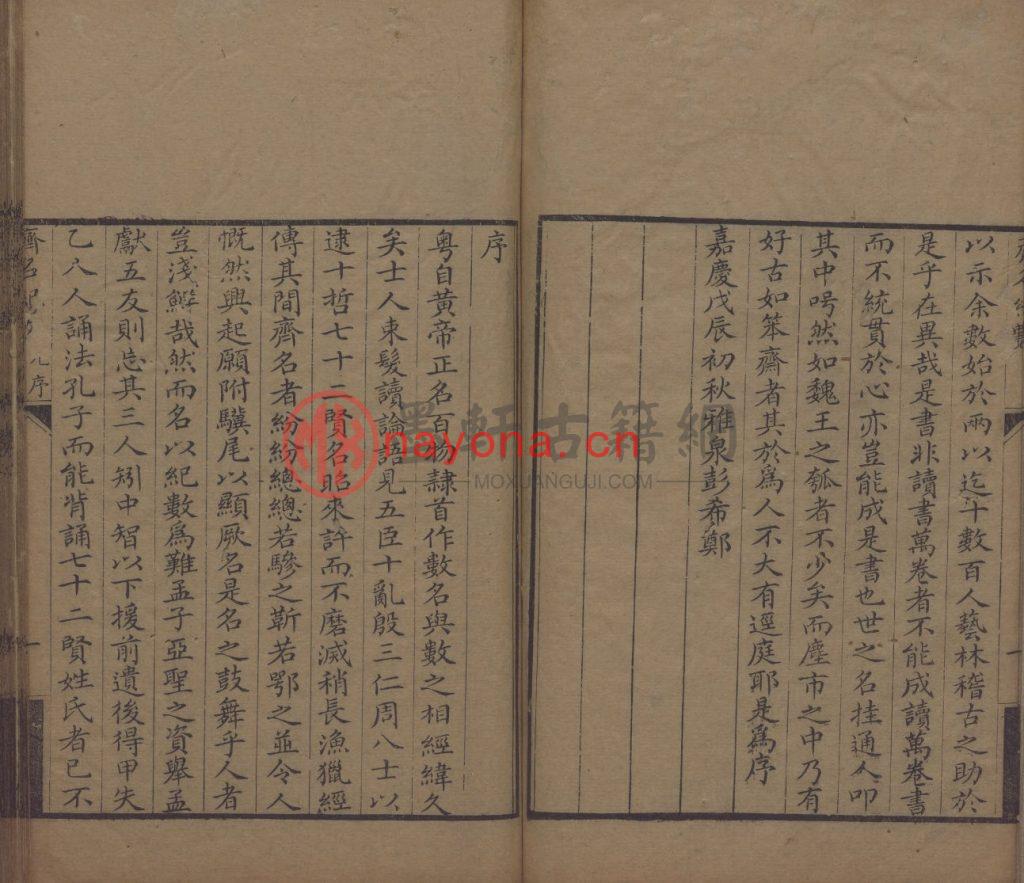 以示余數始於兩以迄千數百人藝林稽古之助於
是乎在異哉是書非讀書萬卷者不能成讀萬卷書
而不統貫於心亦豈能成是書也世之名挂通人叩
其中呺然如魏王之瓠者不少矣而塵市之中乃有
好古如笨齋者其於爲人不大有逕庭耶是爲序
嘉慶戊辰初秋雅泉彭希鄭
序
粤自黃帝正名百物隸首作數名與數之相經緯久
矣士人束髮讀論語見五臣十亂殷三仁周八士以
逮十哲七十二賢名昭來許而不磨滅稍長漁獵經
傳其間齊名者紛紛總總若驂之靳若鄂之並令人
慨然興起願附驥尾以顯厥名是名之鼓舞乎人者
豈淺鮮哉然而名以紀數爲難孟子亞聖之資舉孟
獻五友則忘其三人矧中智以下援前遺後得甲失
乙久人誦法孔子而能背誦七十二賢姓氏者已不
序
一
墨軒古籍網
nayona.cn
MOXUANGUJI.COM